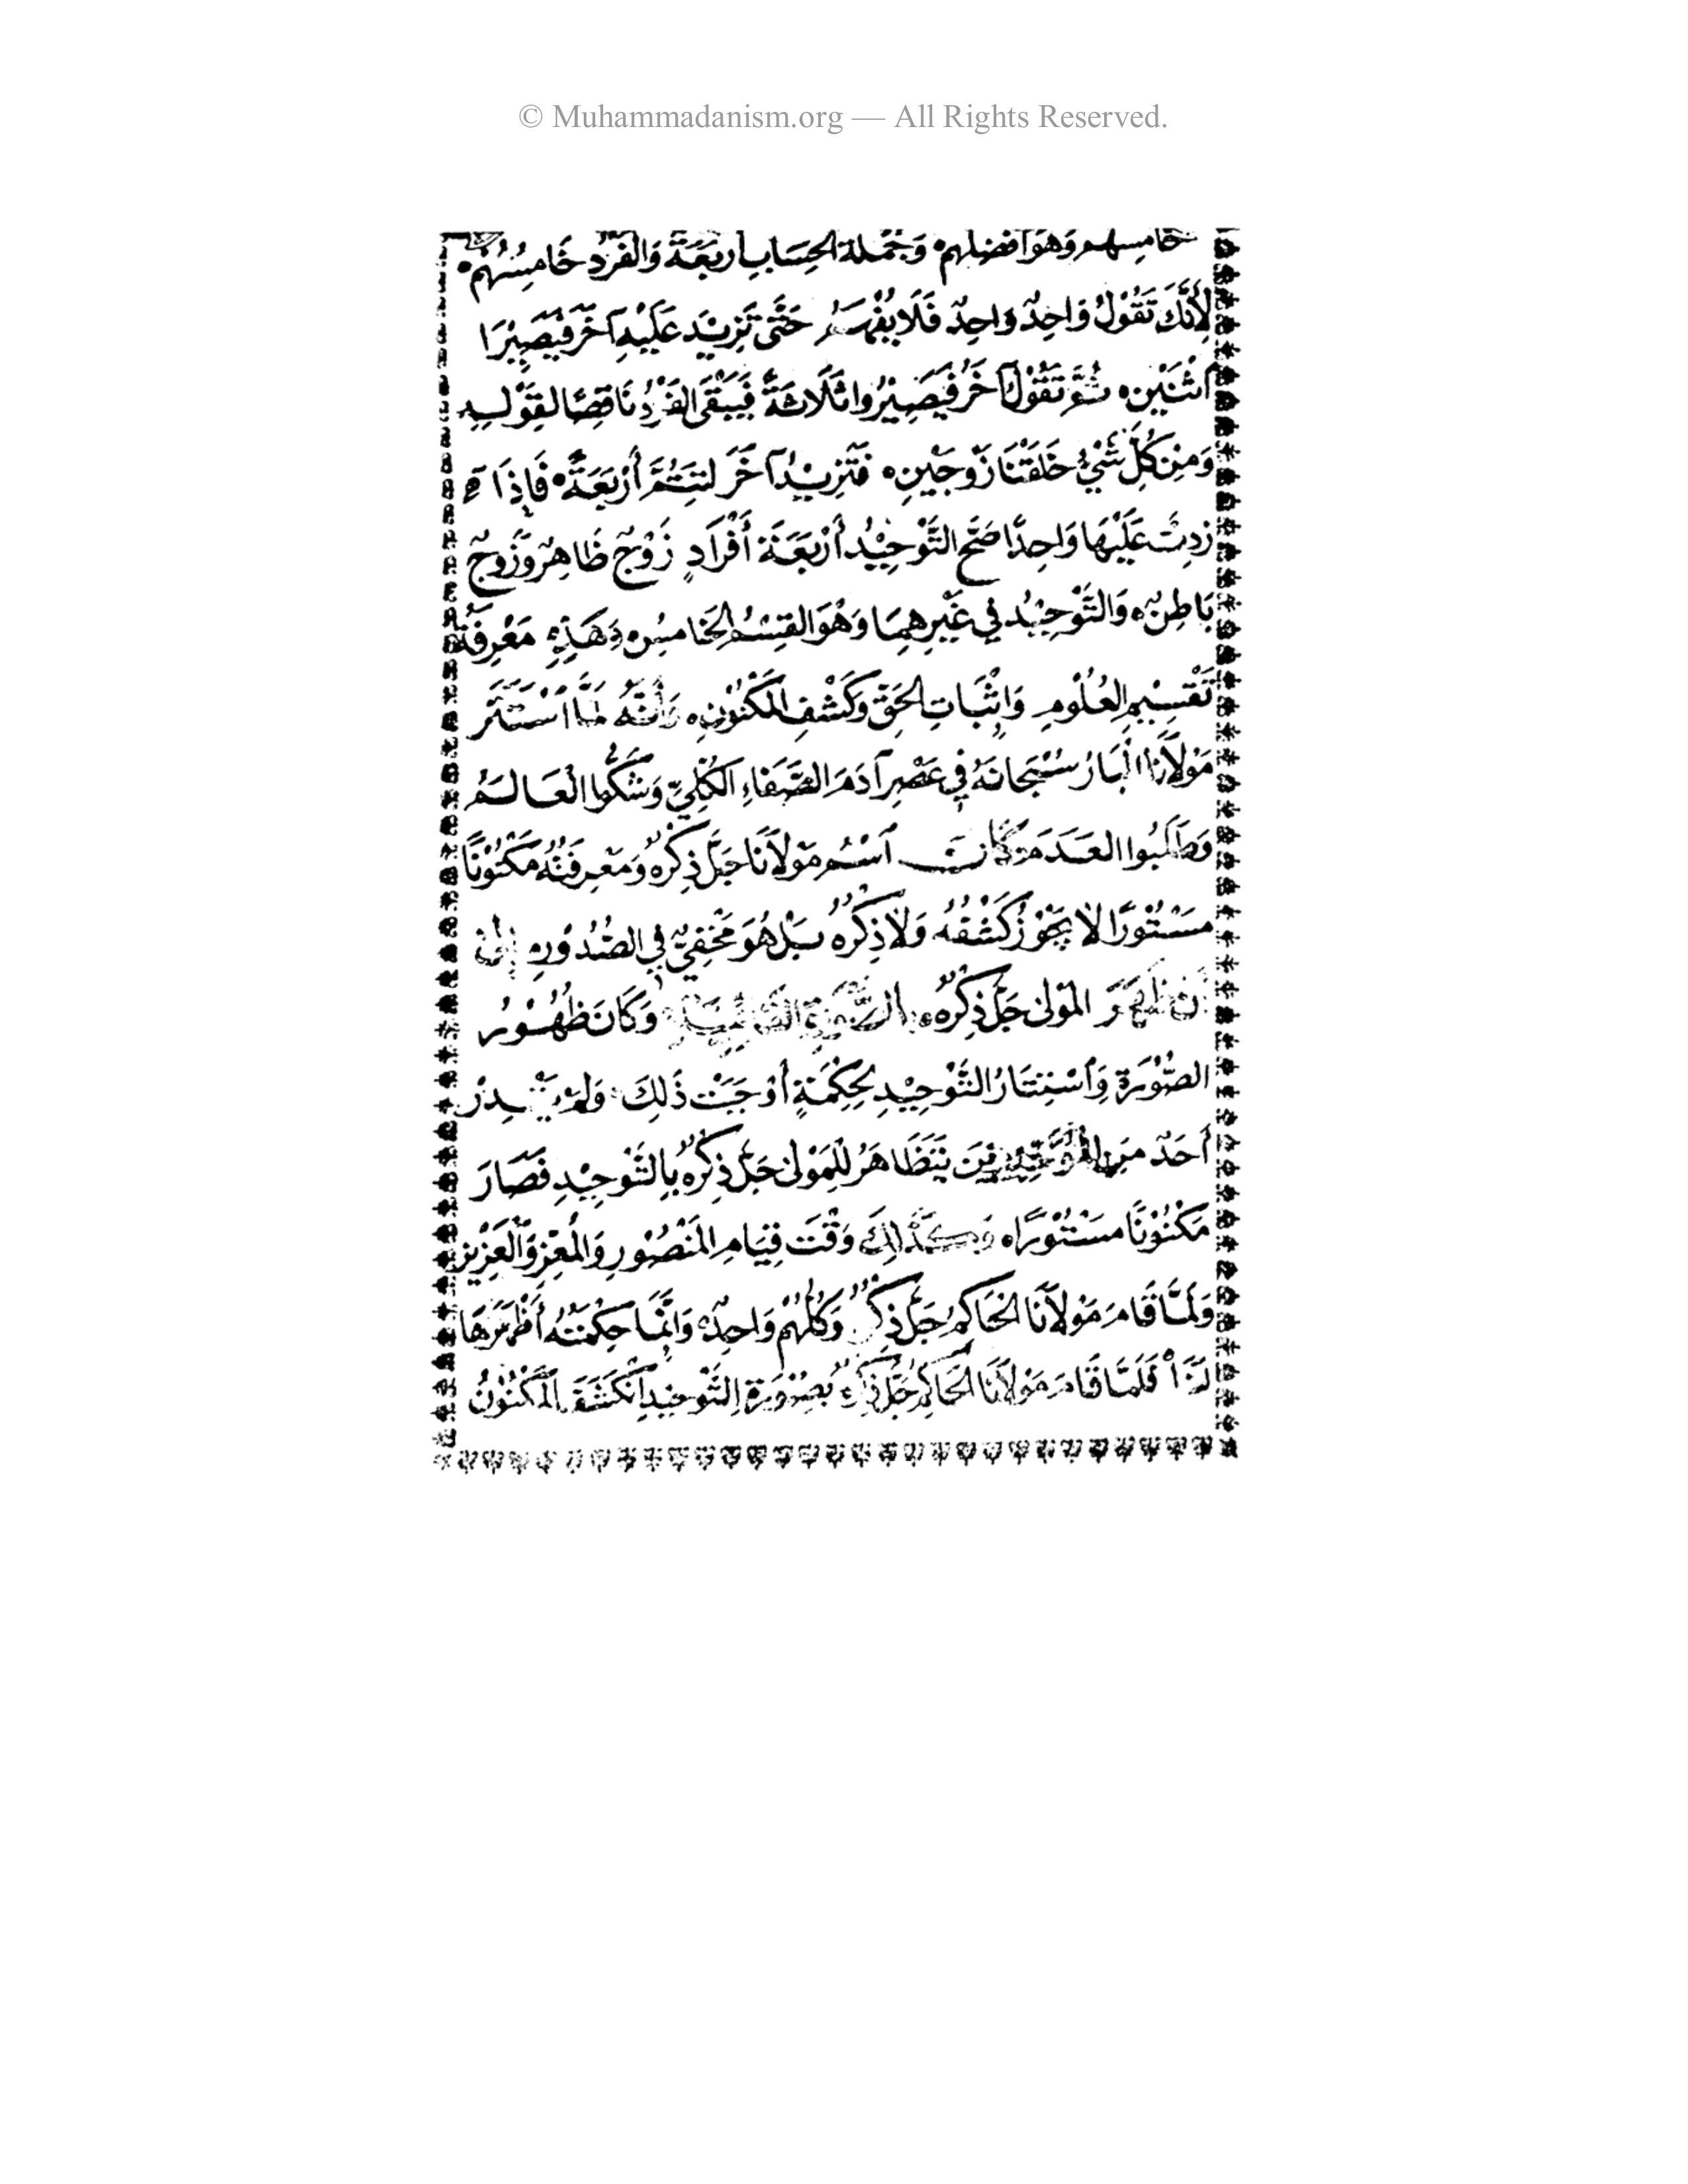 © Muhammadanism.org — All Rights Reserved.
خامسهم وهو أفضلهم ۰ وَجُمْلَة الحِسَابِ أربَعَةٌ وَالْفَرْدُ خَامِسُهُمْ ۰
لِأَنَّكَ تَقُوْلُ وَاحِدٌ وَاحِدٌ فَلَا يُفْهَمُ حَتَّى تَزِيْدَ عَلَيْهِ آخَرَ فَيَصِيْرَا
اَثْنَيْنِ ۰ ثُمَّ تَقُوْلُ آخَرُ فَيَصِيْرُوا ثَلَاثَةً فَيَبْقَى الفَرْدُ نَاقِصًا لِقَوْلِهِ
وَمِنْ كُلِّ شَيْءٍ خَلَقْنَا زَوْجَيْنِ ۰ فَتَزِيْدُ آخَرَ لِتَتِمَّ أَرْبَعَةً ۰ فَإِذَا
زِدتَّ عَلَيْهَا وَاحِدًا صَحَّ التَّوْحِيْدُ أَرْبَعَةَ أَفْرَادٍ زَوْجٌ ظَاهِرٌ وَزَوْجٌ
بَاطِنٌ ۰ وَالتَّوْحِيْدُ فِي غَيْرِهِمَا وَهُوَ القِسْمُ الخَامِسُ ۰ وَهَذِهِ مَعْرِفَةُ
تَقْسِيْمِ العُلُوْمِ وَإِثْبَاتِ الحَقِّ وَكَشْفِ المَكْنُوْنِ ۰ وَأَنَّهُ لَمَّا اَسْتَتَرَ
مَوْلَانَا البَارُ سُبْحَانَهُ فِي عَصْرِ آدَمَ الصَّفَاءِ الكُلِّيّ وَشَكُّوا الْعَالَمُ
وَطَلَبُوا العَدَمَ كَانَت اَسْمُ مَوْلَانَا جَلَّ ذِكْرُهُ وَمَعْرِفَتُهُ مَكْنُوْنًا
مَسْتُوْرًا لَا يَجُوْزُ كَشْفُهُ وَلَا ذِكْرُهُ بَلْ هُوَ مَخْفِيٌّ فِي الصُّدُوْرِ إِلَى
أَنْ ظَهَرَ المَوْلَى جَلَّ ذِكْرُهُ وَكَانَ ظُهُوْرُ
الصُّوْرَةِ وَاَسْتِتَارُ التَّوْحِيْدِ لِحِكْمَةٍ أَوْجَبَتْ ذَلِكَ وَلَمْ يَقْدِرْ
أَحَدٌ مِنَ المُوَحِّدِيْنَ يَتَظَاهَرُ لِلْمَوْلَى جَلَّ ذِكْرُهُ بِالتَّوْحِيْدِ فَصَارَ
مَكْنُوْنًا مَسْتُوْرًا ۰ وَكَذَلِكَ وَقْتَ قِيَامِ المَنْصُوْرِ وَالمُعِزِّ وَالْعَزِيْزِ
وَلَمَّا قَامَ مَوْلَانَا الحَاكِمُ جَلَّ ذِكْرُهُ وَكُلُّهُمْ وَاحِدٌ ۰ وَإِنَّمَا حِكْمَتُهُ أَظْهَرَهَا
لَنَا فَلَمَّا قَامَ مَوْلَانَا الحَاكِمُ جَلَّ ذِكْرُهُ بِصُوْرَةِ التَّوْحِيْدِ اَنْكَشَفَ المَكْنُوْنُ